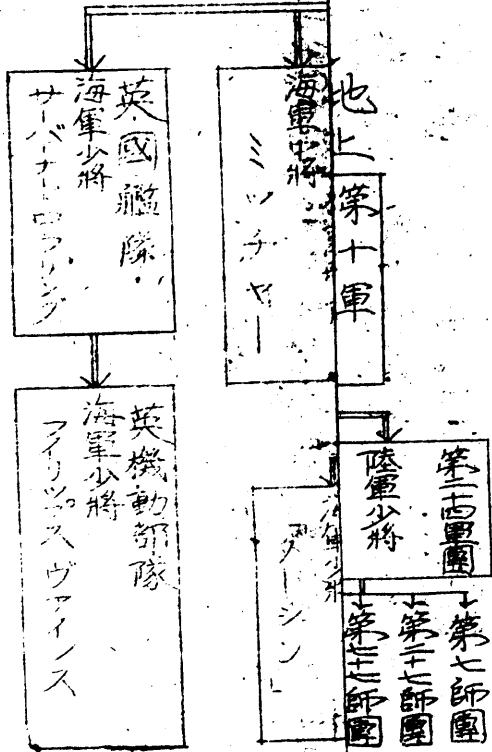 地上
第十軍
第二十四軍團
陸軍少將
第七師團
第二十七師團
第七十七師團
海軍中將
ミッチャー
海軍少將
英國艦隊
海軍少將
サーバーナード
英機動部隊
海軍少將
フイリップス ヴァインス